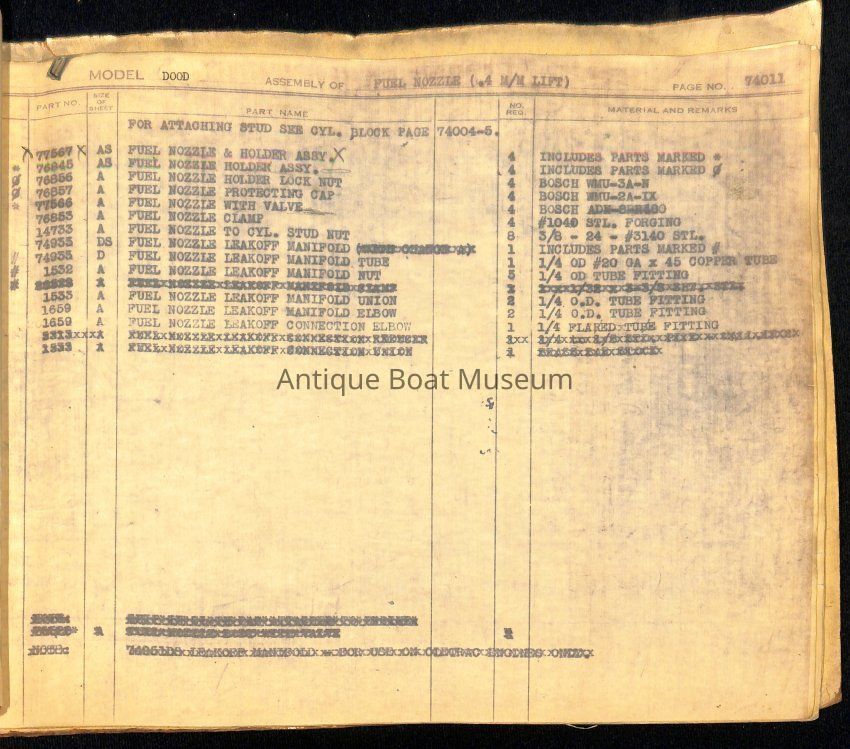 MODEL DOOD ASSEMBLY OF FUEL NOZZLE (.4 M/M LIFT) PAGE NO. 74011
PART NO. SIZE OF SHEET PART NAME NO. REQ. MATERIAL AND REMARKS
FOR ATTACHING STUD SEE CYL. BLOCK PAGE 74004-5.
X 77567 X AS FUEL NOZZLE & HOLDER ASSY. X 4 INCLUDES PARTS MARKED *
* 76845 AS FUEL NOZZLE HOLDER ASSY. 4 INCLUDES PARTS MARKED Ø
Ø 76856 A FUEL NOZZLE HOLDER LOCK NUT 4 BOSCH WMU-3A-N
Ø 76857 A FUEL NOZZLE PROTECTING CAP 4 BOSCH WMU-2A-IX
* 77566 A FUEL NOZZLE WITH VALVE 4 BOSCH
76853 A FUEL NOZZLE CLAMP 4 #1040 STL. FORGING
14733 A FUEL NOZZLE TO CYL. STUD NUT 8 3/8 - 24 - #3140 STL.
74935 DS FUEL NOZZLE LEAKOFF MANIFOLD 1 INCLUDES PARTS MARKED #
74935 D FUEL NOZZLE LEAKOFF MANIFOLD TUBE 1 1/4 OD #20 GA x 45 COPPER TUBE
# 1532 A FUEL NOZZLE LEAKOFF MANIFOLD NUT 5 1/4 OD TUBE FITTING
# A FUEL NOZZLE LEAKOFF MANIFOLD
1533 A FUEL NOZZLE LEAKOFF MANIFOLD UNION 2 1/4 O.D. TUBE FITTING
1659 A FUEL NOZZLE LEAKOFF MANIFOLD ELBOW 2 1/4 O.D. TUBE FITTING
1659 A FUEL NOZZLE LEAKOFF CONNECTION ELBOW 1 1/4 FLARED TUBE FITTING
A FUEL NOZZLE LEAKOFF CONNECTION REDUCER 1
1533 A FUEL NOZZLE LEAKOFF CONNECTION UNION 1 BRASS BAR STOCK
Antique Boat Museum
NOTE:
A WITH VALVE
NOTE: LEAKOFF MANIFOLD - FOR USE ON CLETRAC ENGINES ONLY.